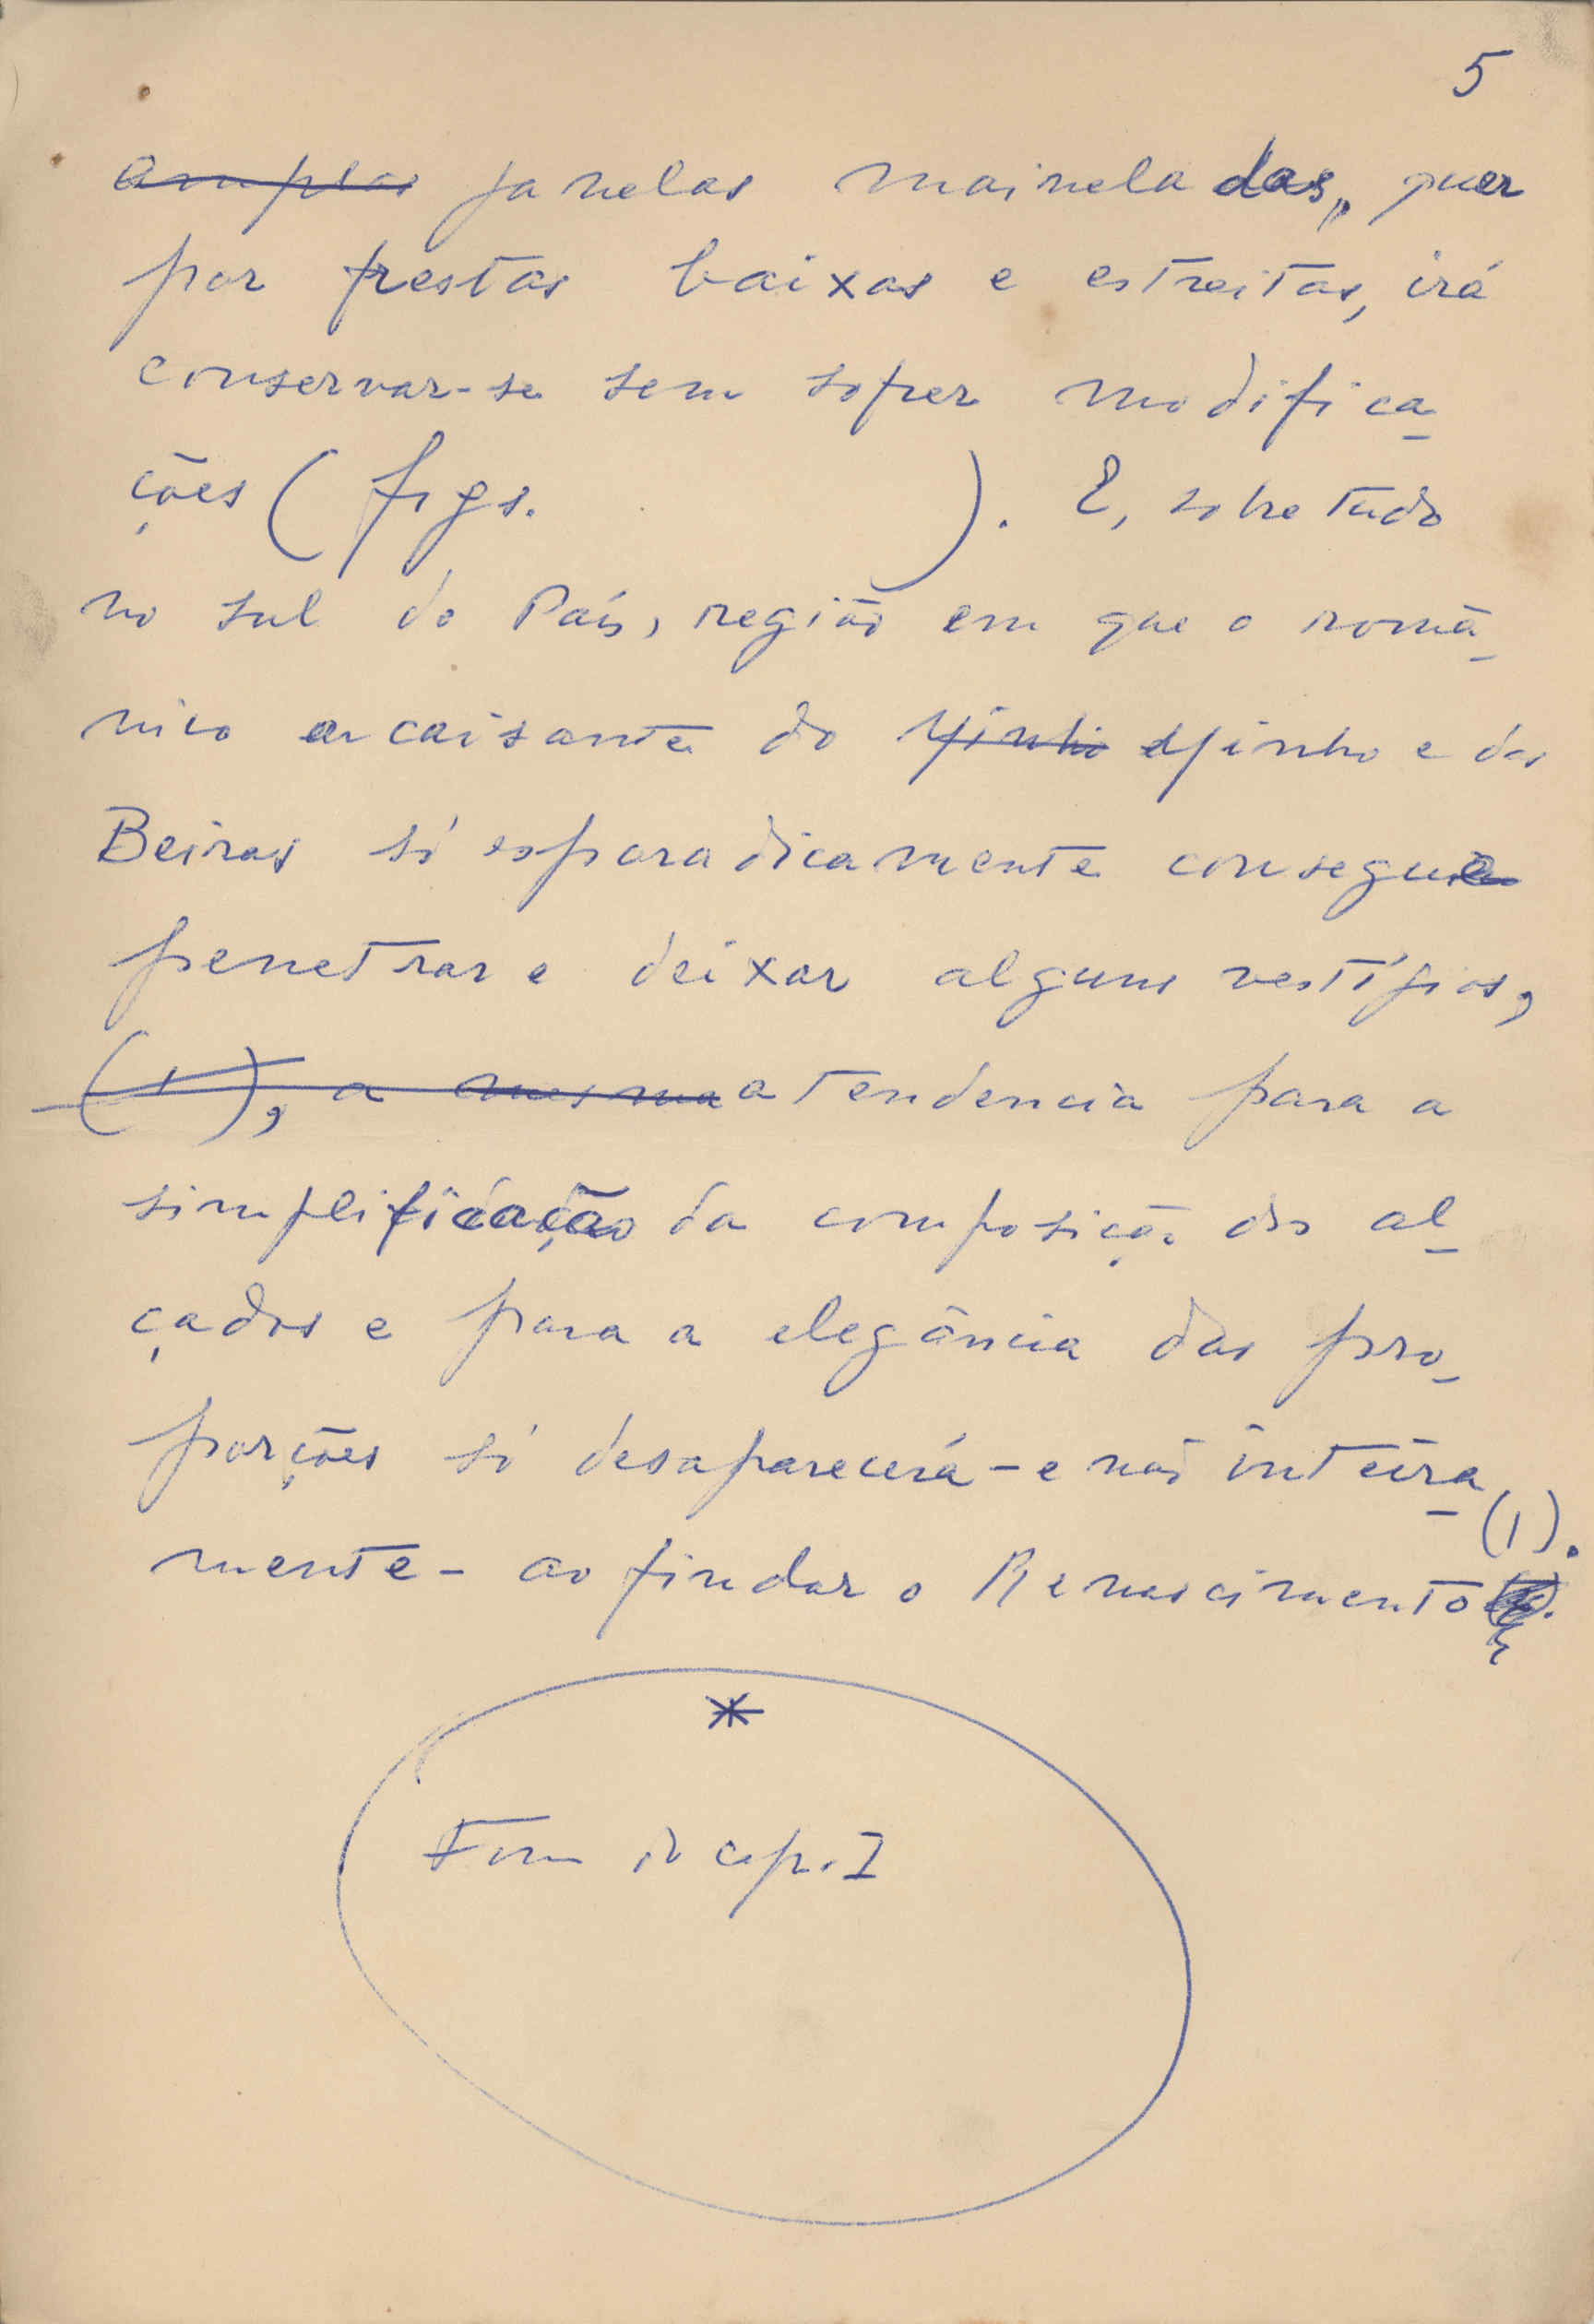 5
amplas janelas maineladas, quer
por frestas baixas e estreitas, irá
conservar-se sem sofrer modifica-
ções (figs. ). E, sobretudo
no sul do País, região em que o romã-
nico arcaisante do Minho Minho e das
Beiras só esporadicamente consegue
penetrar e deixar alguns vestígios,
(1), a mesma a tendencia para a
simplificação da composição dos al-
çados e para a elegância das pro-
porções só desaparecerá - e não inteira-
mente - ao findar o Renascimento (1).
*
Fim do cap. I